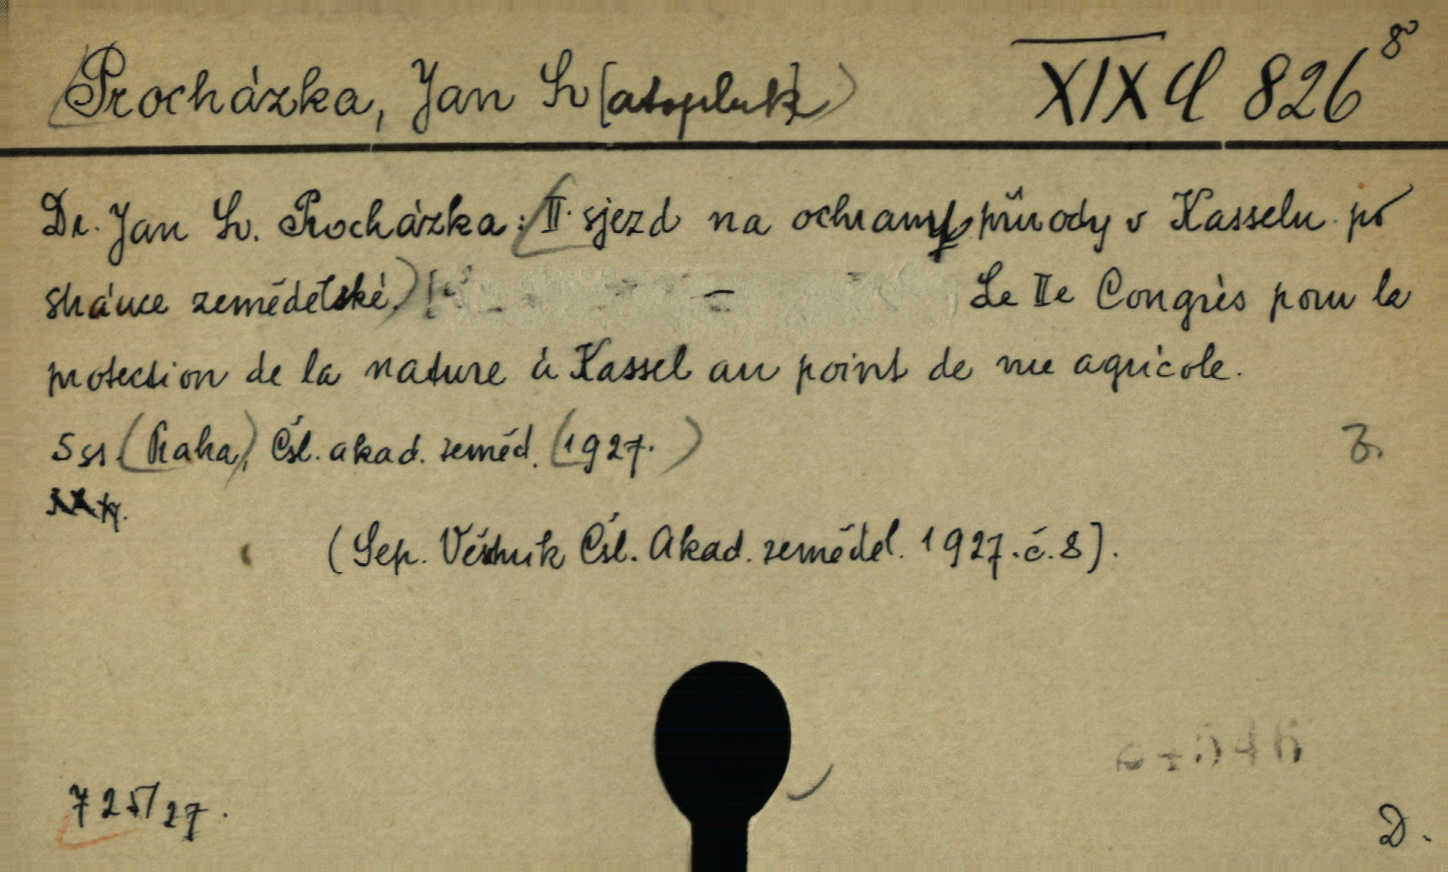 Procházka, Jan Sv[atopluk] XIX d 826 8°
Dr. Jan Sv. Procházka: II. sjezd na ochranu přírody v Kasselu po
stránce zemědělské. Le IIe Congrès pour la
protection de la nature à Kassel au point de vue agricole.
5 str. (Praha), Čsl. akad. zeměd. (1927.)
(Sep. Věstník Čsl. Akad. zeměděl. 1927. č. 8).
725/27.
D.